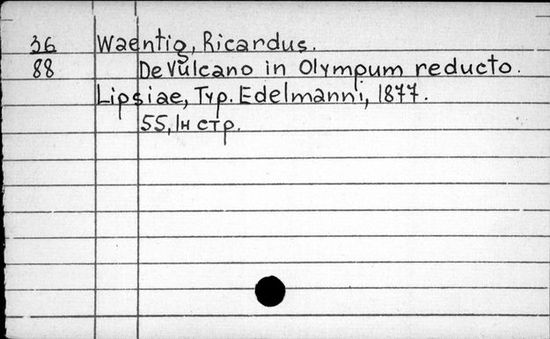 36 Waentig, Ricardus.
88 De Vulcano in Olympum reducto.
Lipsiae, Typ. Edelmanni, 1877.
55, 1н стр.